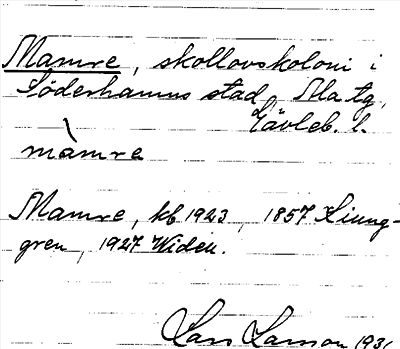 Mamre, skollovskoloni i
Söderhamns stad, Ala tg,
Gävleb. l.
màmre
Mamre, kb 1923, 1857 Ljung-
gren, 1927 Widen.
Lars Larson